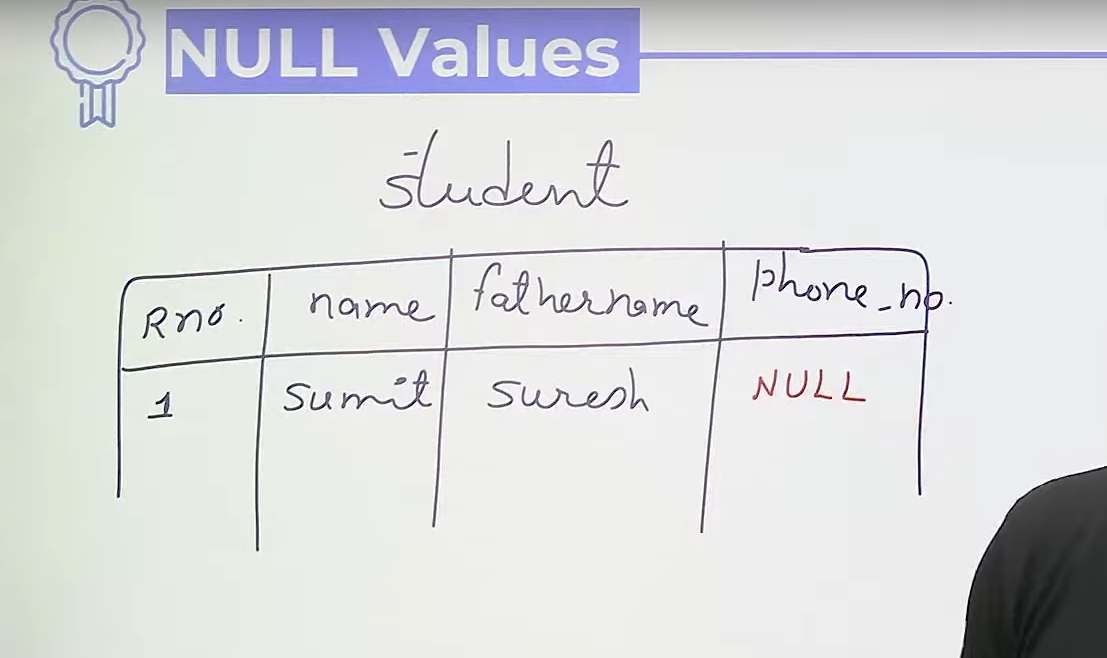 NULL Values
student
Rno. name fathername phone_no.
1 sumit suresh NULL